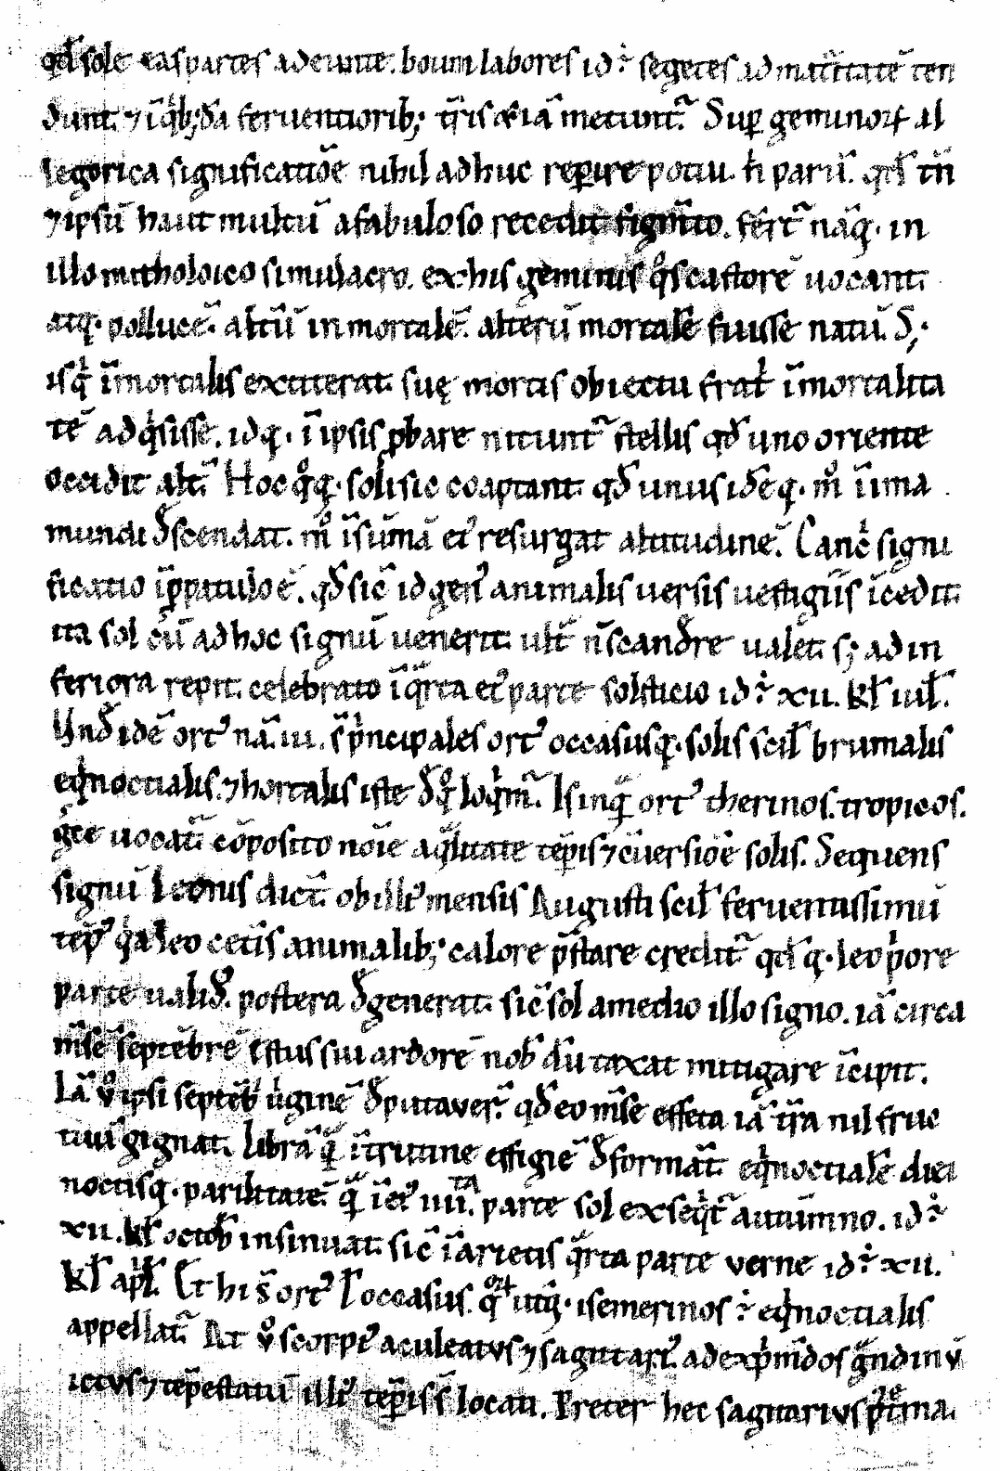 qđ sole eas partes adeunte. boum labores id ē segetes ad maturitatē ten
dunt. ⁊ iq̇b;dā feruentiorib; tr̄is &iā metunt᷑. Sup geminoꝝ al
legorica significatiōe nihil adhuc rep̱ire potiu. ƀ parū. qđ tn̄
⁊ ipsū haut multū a fabuloso recedit figm̄to. fert᷑ naq̨. in
illo mithologico simulacro. ex his geminis q̊s castorē uocant
atq̨. pollucē. altū inmortalē. alterū mortalē fuisse natū. S;
isq̇ īmortalis extiterat. suę mortis obiectu frat̓ īmortalita
tē adq̇sisse. idq̨. ī ipsis ꝓbare nitunt᷑ stellis qđ uno oriente
occidit alt᷑. Hoc q̊q̨. soli sic coaptant. qđ unus idēq̨. m̊ ī ima
mundi đscendat. m̊ ī sūmā ei᷒ resurgat altitudinē. Canc̓ signi
ficatio ī ꝓpatulo ē. qđ sic̄ id gen᷒ animalis uersis uestigiis īcedit.
ita sol cū ad hoc signū uenerit. ult᷑ n̄ scandere ualet. s; ad in
feriora repit. celebrato ī q̄rta ei᷒ parte solsticio id ē xii. kł iuł.
Vnđ idē ort᷒ nā .iii. s̄ p̓ncipales ort᷒ occasusq̨. solis scił brumalis
eq̇noctialis. ⁊ hortalis iste đ q̊ loq̇m᷑. Is inq̄ ort᷒ therinos. tropicos.
gᷓce uocat᷑ cōposito noīe a q̄litate tēp̱is ⁊ cūersiōe solis. Sequens
signū Leonis dict᷑. ob illi᷒ mensis Augusti scił feruentissimū
tēp᷒ q̓a leo cet̄is animalib; calore p̄stare credit᷑ qđq̨. leo p̓ore
parte ualid᷒. postera đgenerat. sic̄ sol a medio illo signo. iā circa
m̄sē septēbrē estus sui ardorē nob̄ dūtaxat mitigare īcipit.
Iā v̊ ipsi septēb̓ v̓ginē đputaver᷑. qđ eo m̄se effeta iā tr̄a nil frue
tiuū gignat. librā q̄ ī trutine effigiē đformat᷑. eq̇noctialē diei
noctisq̨. parilitatē. q̄ ī ei᷒ iiii.ta parte sol exseq̇t᷑ autūmno. id ē
xii. kł octob̄ insinuat. sic̄ ī arietis q̄rta parte verne id ē xii.
kł apł. Et his ort᷒ ł occasus. q̊ꝝ utq̨. isemerinos .ē. eq̇noctialis
appellat᷑. At v̊ scorpi᷒ aculeatvs ⁊ sagittari᷒. ad exp̓mēdos gᷓndinū
ictvs ⁊ tēpestatū illi᷒ tēp̱is s̄ locati. Preter hec sagittarivs